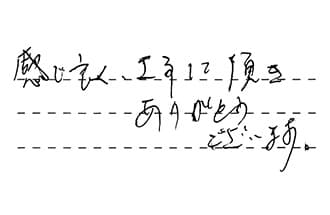 感じ良く、工事して頂き
ありがとう
ございます。